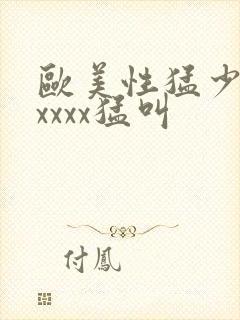 歐美性猛少
xxxx猛叫
付鳳